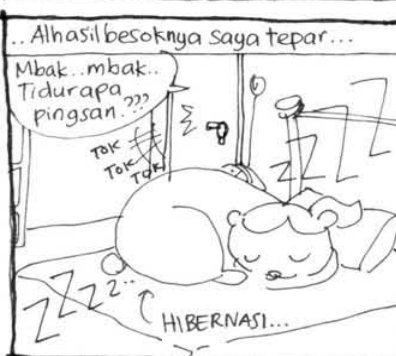 ..Alhasil besoknya saya tepar...
Mbak..mbak..
Tidur apa
pingsan.???
TOK
TOK
TOK
ZZZZ
ZZZz..
HIBERNASI...